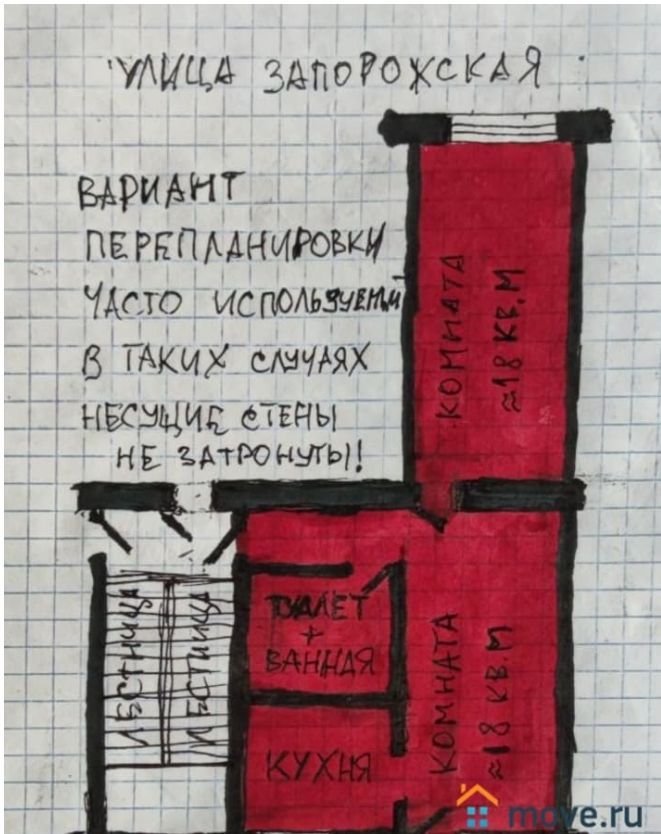 УЛИЦА ЗАПОРОЖСКАЯ
ВАРИАНТ
ПЕРЕПЛАНИРОВКИ
ЧАСТО ИСПОЛЬЗУЕМЫЙ
В ТАКИХ СЛУЧАЯХ
НЕСУЩИЕ СТЕНЫ
НЕ ЗАТРОНУТЫ!
КОМНАТА
≈18 КВ,М
ЛЕСТНИЦА
ЛЕСТНИЦА
ТУАЛЕТ
+
ВАННАЯ
КУХНЯ
КОМНАТА
≈18 КВ.М
move.ru